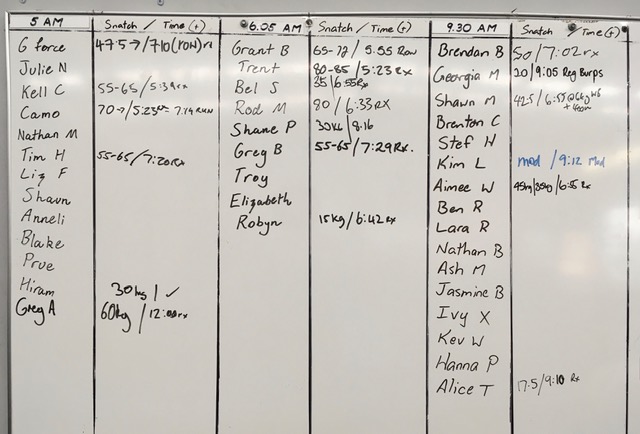 5 AM Snatch / Time (+)
G force 47.5 → / 7:10 (ROW)
Julie N
Kell C 55-65 / 5:39 rx
Camo 70 → / 5:23 = 7:14 RUN
Nathan M
Tim H 55-65 / 7:20 rx
Liz F
Shaun
Anneli
Blake
Prue
Hiram 30kg / ✓
Greg A 60kg / 12:00 rx
6.05 AM Snatch / Time (+)
Grant B 65-72 / 5:55 Row
Trent 80-85 / 5:23 Rx
Bel S 35 / 6:55 Rx
Rod M 80 / 6:33 RX
Shane P 30kg / 8:16
Greg B 55-65 / 7:29 Rx.
Troy
Elizabeth
Robyn 15kg / 6:42 rx
9.30 AM Snatch / Time (+)
Brendan B 50 / 7:02 rx
Georgia M 20 / 9:05 Reg Burps
Shawn M 42.5 / 6:55 @6kg WB
+ 400m
Brenton C
Stef H
Kim L mod / 9:12 Mod
Aimee W 45kg / 6:55 Rx
Ben R
Lara R
Nathan B
Ash M
Jasmine B
Ivy X
Kev W
Hanna P
Alice T 17.5 / 9:10 Rx